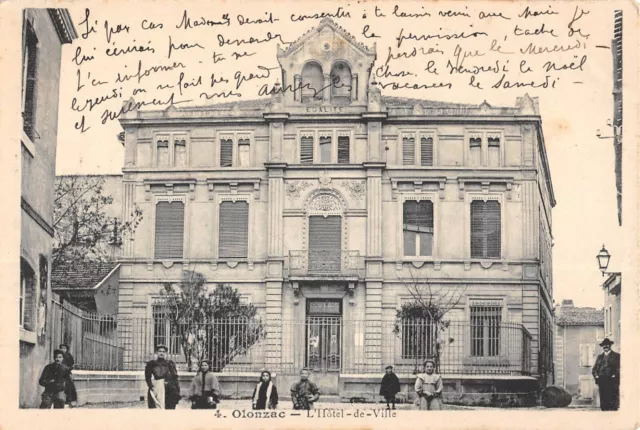 Si par cas Madame devait consentir à te laisser venir avec Marie je
lui écrirais pour demander la permission, tache de
t'en informer - tu ne perdrais que le Mercredi
le jeudi on ne fait pas grand chose, le vendredi le noël
et surement vous aurez les vacances le samedi -
EGALITE
4. Olonzac - L'Hôtel-de-Ville